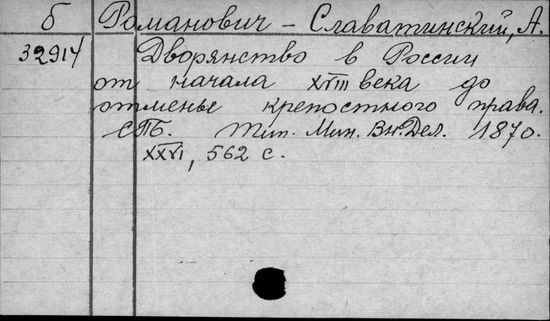 б Романович-Славатинский, А.
32914 Дворянство в России
от начала XVIII века до
отмены крепостного права.
СПБ. Тип. Мин. Вн. Дел. 1870.
XXVI, 562 с.